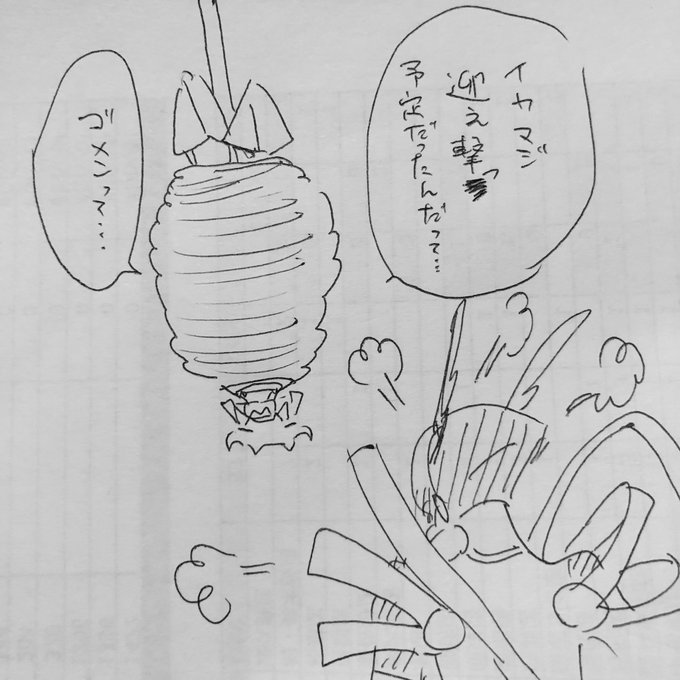 イヤマジ
迎え撃つ
予定だったんだって…
ゴメンって…